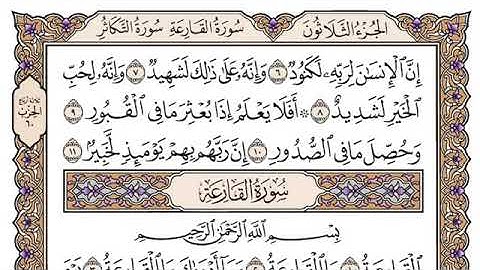 الجزء الثلاثون سورة القارعة سورة التكاثر
إِنَّ الْإِنسَٰنَ لِرَبِّهِۦ لَكَنُودٌ ٦ وَإِنَّهُۥ عَلَىٰ ذَٰلِكَ لَشَهِيدٌ ٧ وَإِنَّهُۥ لِحُبِّ
الْخَيْرِ لَشَدِيدٌ ٨ ۞ أَفَلَا يَعْلَمُ إِذَا بُعْثِرَ مَا فِي الْقُبُورِ ٩
وَحُصِّلَ مَا فِي الصُّدُورِ ١٠ إِنَّ رَبَّهُم بِهِمْ يَوْمَئِذٍ لَّخَبِيرٌۢ ١١
سُورَةُ الْقَارِعَةِ
بِسْمِ اللَّهِ الرَّحْمَٰنِ الرَّحِيمِ